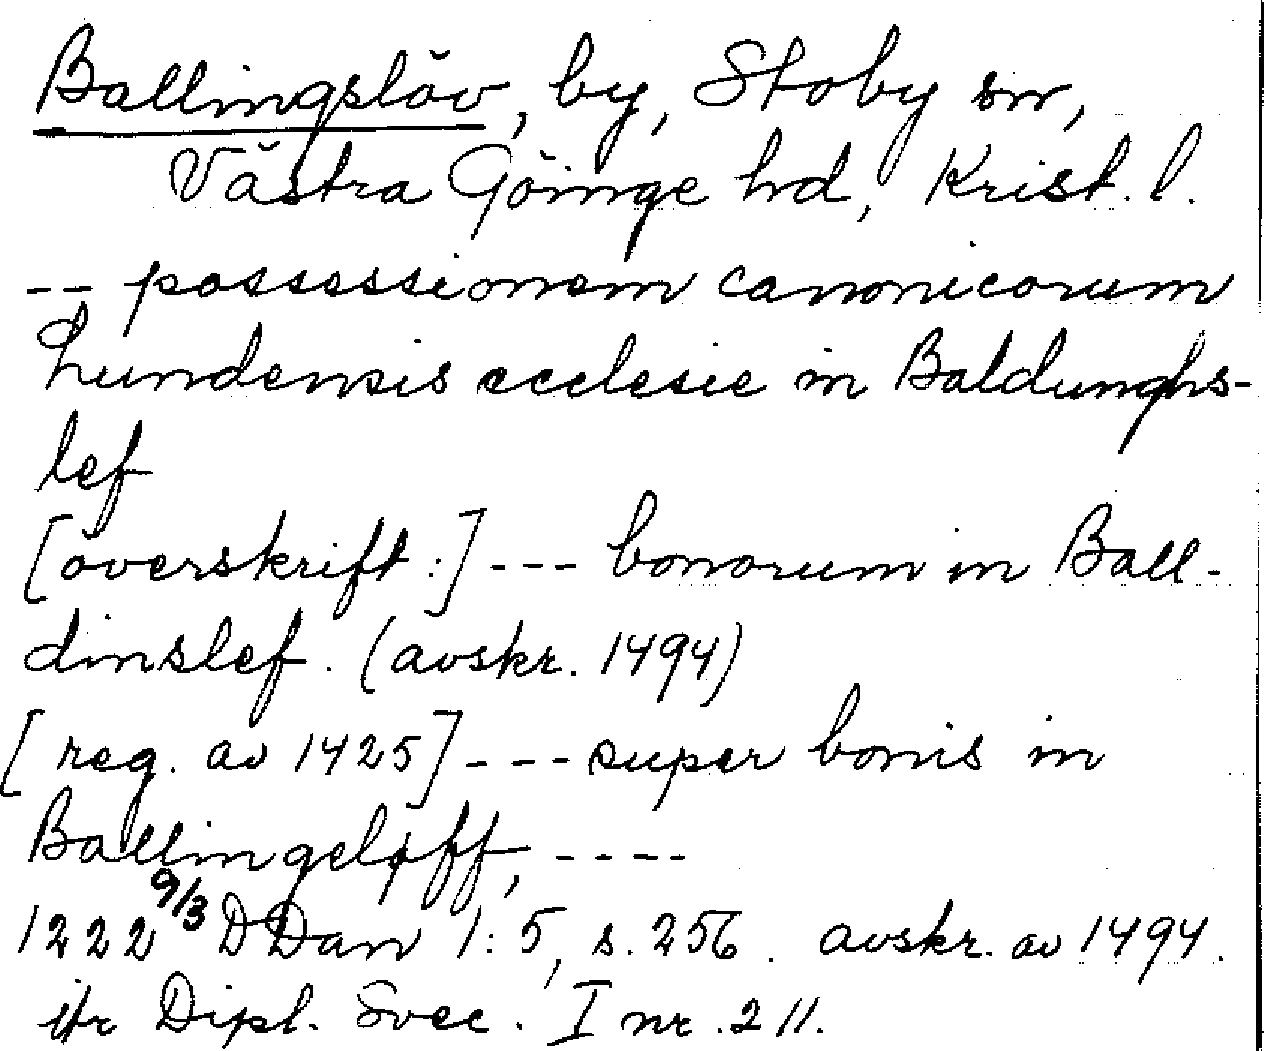 Ballingslöv, by, Stoby sn,
Västra Göinge hd, Krist. l.
-- possessionem canonicorum
Lundensis ecclesie in Baldunghs-
lef
[överskrift:] --- bonorum in Ball-
dinslef. (avskr. 1494)
[reg. av 1425] --- super bonis in
Ballingeløff, ----
1222 9/3 DDan 1:5, s. 256. avskr. av 1494.
Dipl. Svec. I nr. 211.